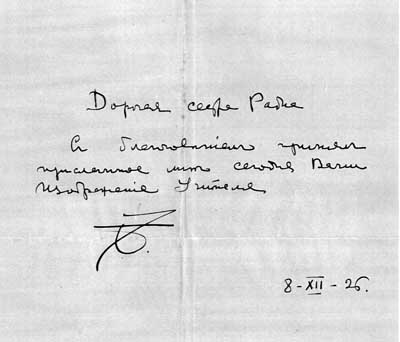 Дорогая сестра Радна
С благоговением принял
присланное мне сегодня Вами
Изображение Учителя
8-XII-26.